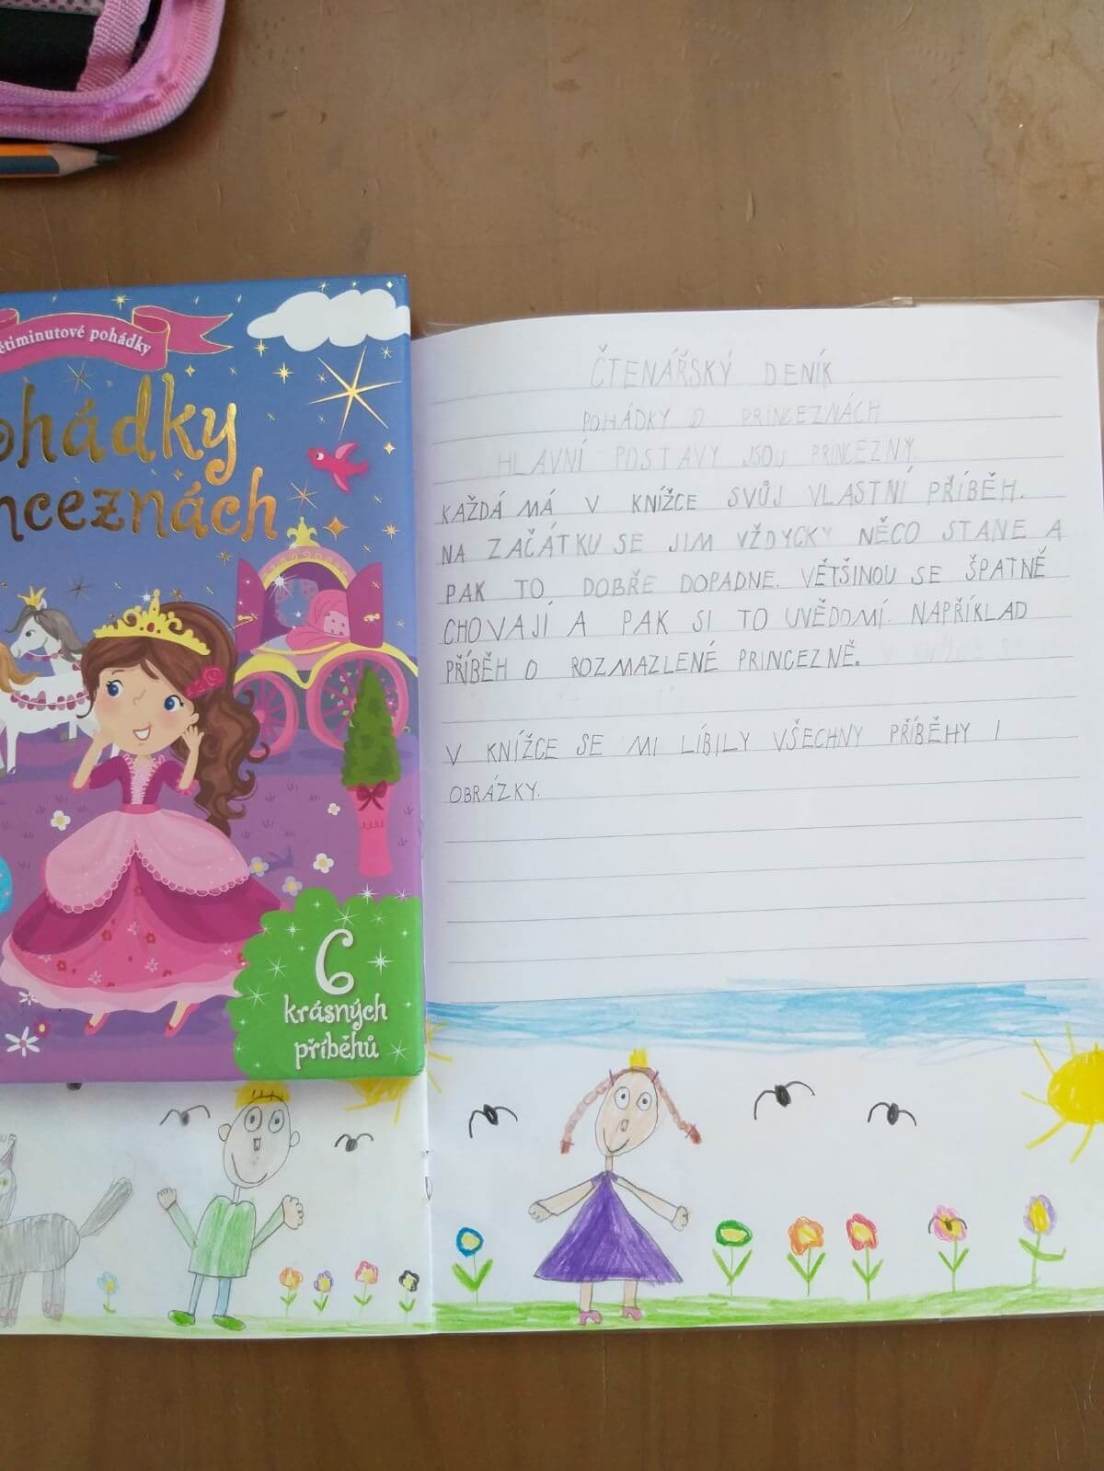 ětiminutové pohádky
ohádky
nceznách
6
krásných
příběhů
ČTENÁŘSKÝ DENÍK
POHÁDKY O PRINCEZNÁCH
HLAVNÍ POSTAVY JSOU PRINCEZNY.
KAŽDÁ MÁ V KNÍŽCE SVŮJ VLASTNÍ PŘÍBĚH.
NA ZAČÁTKU SE JIM VŽDYCKY NĚCO STANE A
PAK TO DOBŘE DOPADNE. VĚTŠINOU SE ŠPATNĚ
CHOVAJÍ A PAK SI TO UVĚDOMÍ. NAPŘÍKLAD
PŘÍBĚH O ROZMAZLENÉ PRINCEZNĚ.
V KNÍŽCE SE MI LÍBILY VŠECHNY PŘÍBĚHY I
OBRÁZKY.